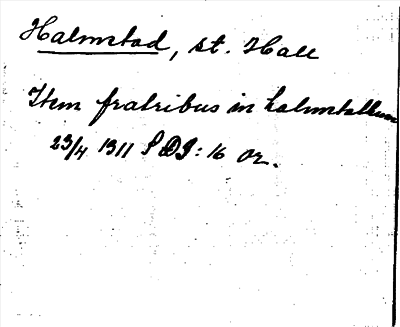 Halmstad, st. Hall
Item fratribus in halmstallum
23/4 1311 SDI: 16 or.